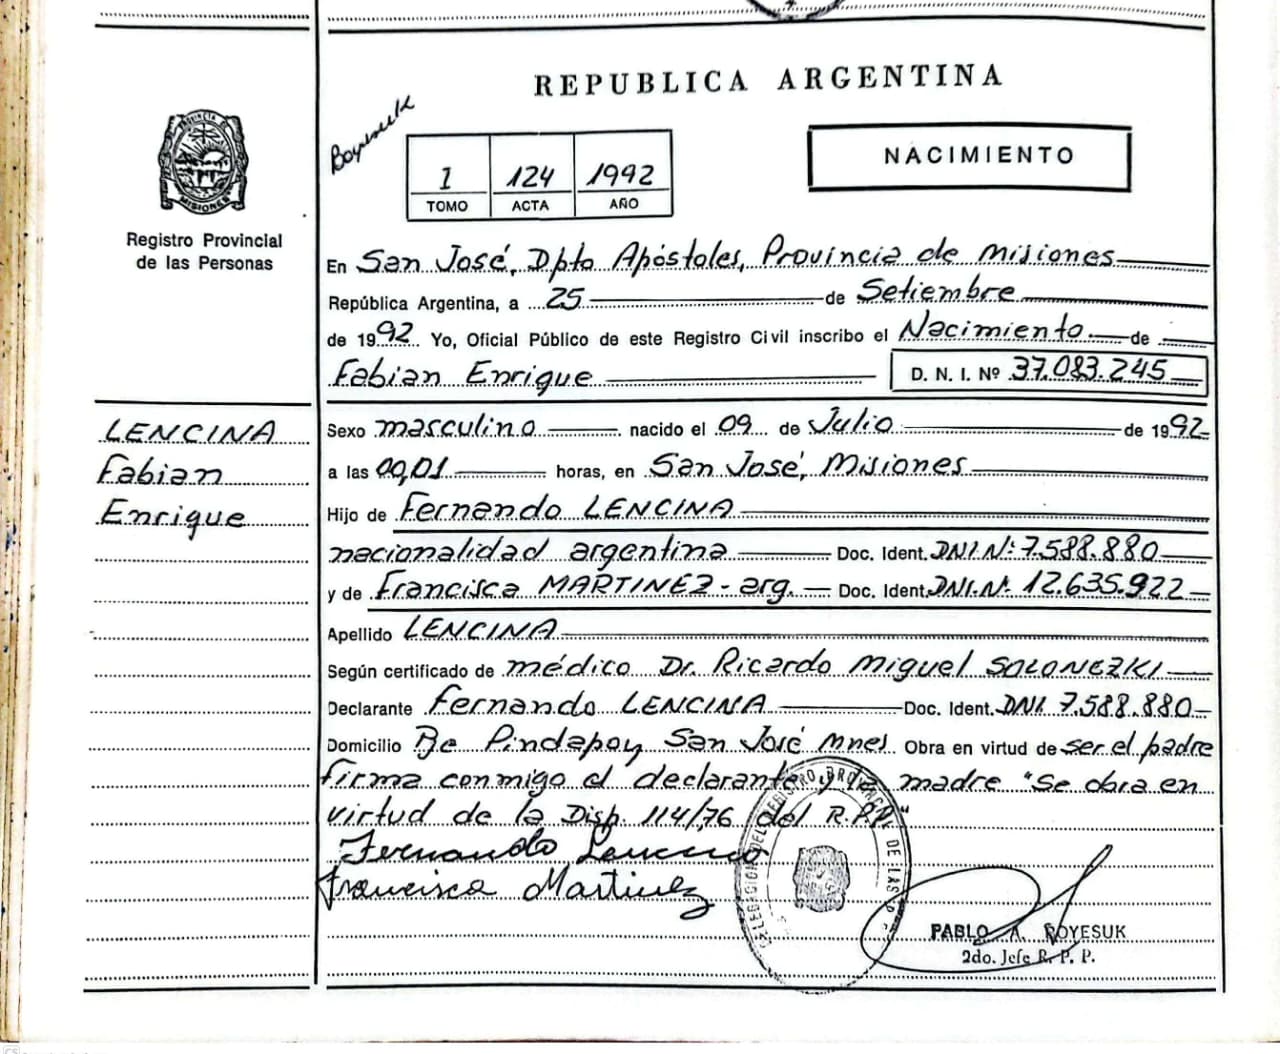 REPUBLICA ARGENTINA
Boyesuk
NACIMIENTO
1 124 1992
TOMO ACTA AÑO
PROVINCIA DE
MISIONES
Registro Provincial
de las Personas
En San José, Dpto Apóstoles, Provincia de Misiones
República Argentina, a 25 de Setiembre
de 1992 Yo, Oficial Público de este Registro Civil inscribo el Nacimiento de
Fabian Enrique D. N. I. Nº 37.083.245
LENCINA
Fabian
Enrique
Sexo masculino nacido el 09 de Julio de 1992
a las 00,01 horas, en San José, Misiones
Hijo de Fernando LENCINA
nacionalidad argentina Doc. Ident. DNI Nº 7.588.880
y de Francisca MARTINEZ - arg. Doc. Ident. DNI. Nº 12.635.922
Apellido LENCINA
Según certificado de médico Dr. Ricardo Miguel SOLONEZKI
Declarante Fernando LENCINA Doc. Ident. DNI. 7.588.880
Domicilio Bº Pindapoy San José Mnes. Obra en virtud de ser el padre
firma conmigo el declarante y la madre "Se obra en
virtud de la Disp. 114/76 del R.P.P."
Fernando Lencina
Francisca Martinez
DELEGACION DEL REGISTRO PROVINCIAL DE LAS P.
PABLO A. BOYESUK
2do. Jefe R. P. P.
CS